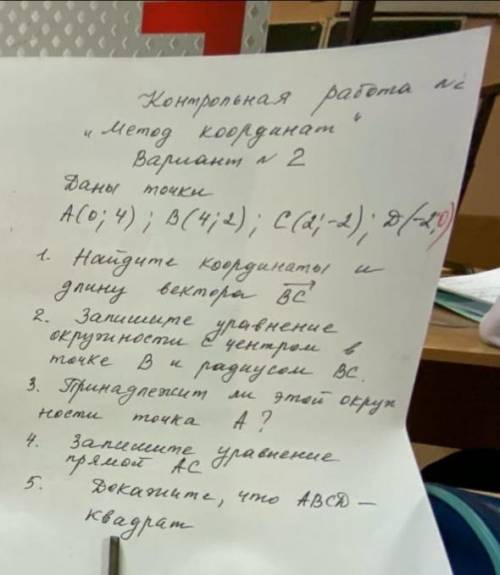 Контрольная работа №2
"Метод координат"
Вариант № 2
Даны точки
A(0; 4); B(4; 2); C(2; -2); D(-2; 0)
1. Найдите координаты и
длину вектора BC
2. Запишите уравнение
окружности с центром в
точке B и радиусом BC.
3. Принадлежит ли этой окруж
ности точка A?
4. Запишите уравнение
прямой AC
5. Докажите, что ABCD –
квадрат